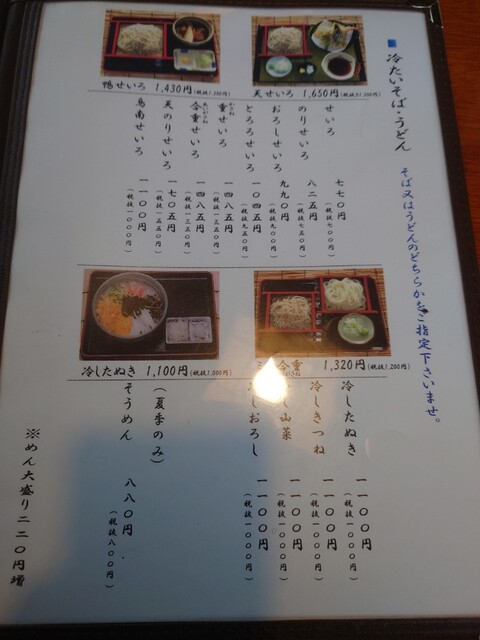 ■ 冷たいそば・うどん
そば又はうどんのどちらかをご指定下さいませ。
天せいろ 1,650円(税抜1,500円)
鴨せいろ 1,430円(税抜1,300円)
せいろ 七七〇円
(税抜七〇〇円)
のりせいろ 八二五円
(税抜七五〇円)
おろしせいろ 九九〇円
(税抜九〇〇円)
とろろせいろ 一〇四五円
(税抜九五〇円)
重せいろ 一四八五円
(税抜一三五〇円)
合重せいろ 一四八五円
(税抜一三五〇円)
天のりせいろ 一七〇五円
(税抜一五五〇円)
鳥南せいろ 一一〇〇円
(税抜一〇〇〇円)
合重 1,320円(税抜1,200円)
冷したぬき 1,100円(税抜1,000円)
冷したぬき 一一〇〇円
(税抜一〇〇〇円)
冷しきつね 一一〇〇円
(税抜一〇〇〇円)
し山菜 一一〇〇円
(税抜一〇〇〇円)
しおろし 一一〇〇円
(税抜一〇〇〇円)
(夏季のみ)
そうめん 八八〇円
(税抜八〇〇円)
※めん大盛り二二〇円増